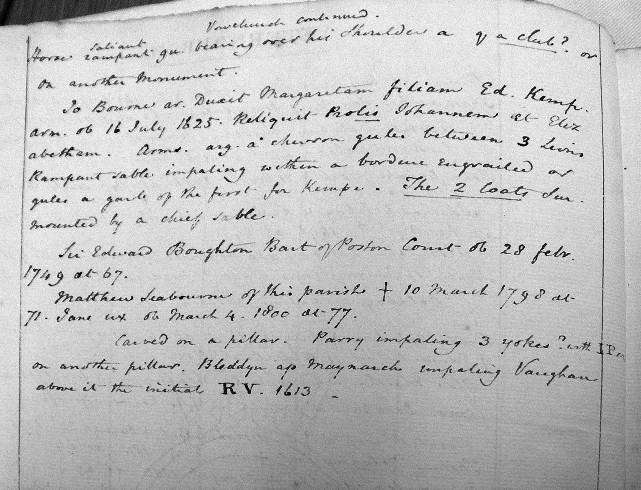 Vowchurch continued.
saliant
Horse rampant gu. bearing over his Shoulder a q a club? or
on another Monument.
Jo Bourne ar. Duxit Margaretam filiam Ed. Kemp.
arm. ob 16 July 1625. Reliquit Prolis Johannem et Eliz
abetham. Arms. arg. a chevron gules between 3 Lions
Rampant sable impaling within a bordure engrailed or
gules a garb of the first for Kempe. The 2 Coats Sur.
mounted by a chief sable.
Sir Edward Boughton Bart of Poston Court ob 28 febr.
1749 æt 67.
Matthew Seabourne of this parish † 10 March 1798 æt
71. Jane ux ob March 4. 1800 æt 77.
Carved on a pillar. Parry impaling 3 yokes? with I P on
on another pillar. Bleddyn ap Maynarch impaling Vaughan
above it the initial RV. 1613